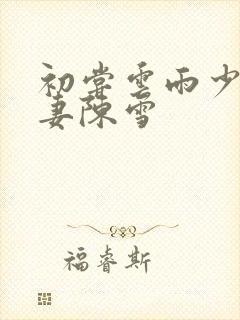 初尝雲雨少
妻陳雪
福睿斯